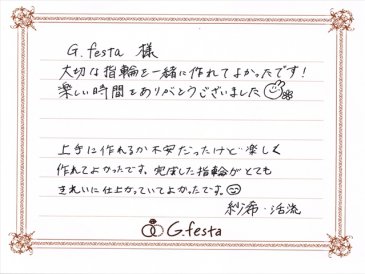 G.festa 様
大切な指輪を一緒に作れてよかったです！
楽しい時間をありがとうございました
上手に作れるか不安だったけど楽しく
作れてよかったです。完成した指輪がとても
きれいに仕上がっていてよかったです。
紗希・活流
G.festa